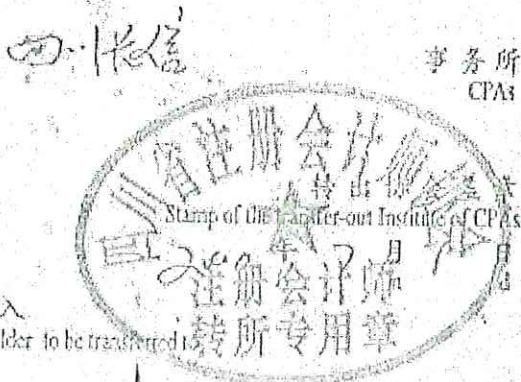 四川长信
事务所
CPAs
四川省注册会计师协会
转出协会盖章
Stamp of the transfer-out Institute of CPAs
年 月 日
注册会计师
转所专用章
入
lder to be transferred to